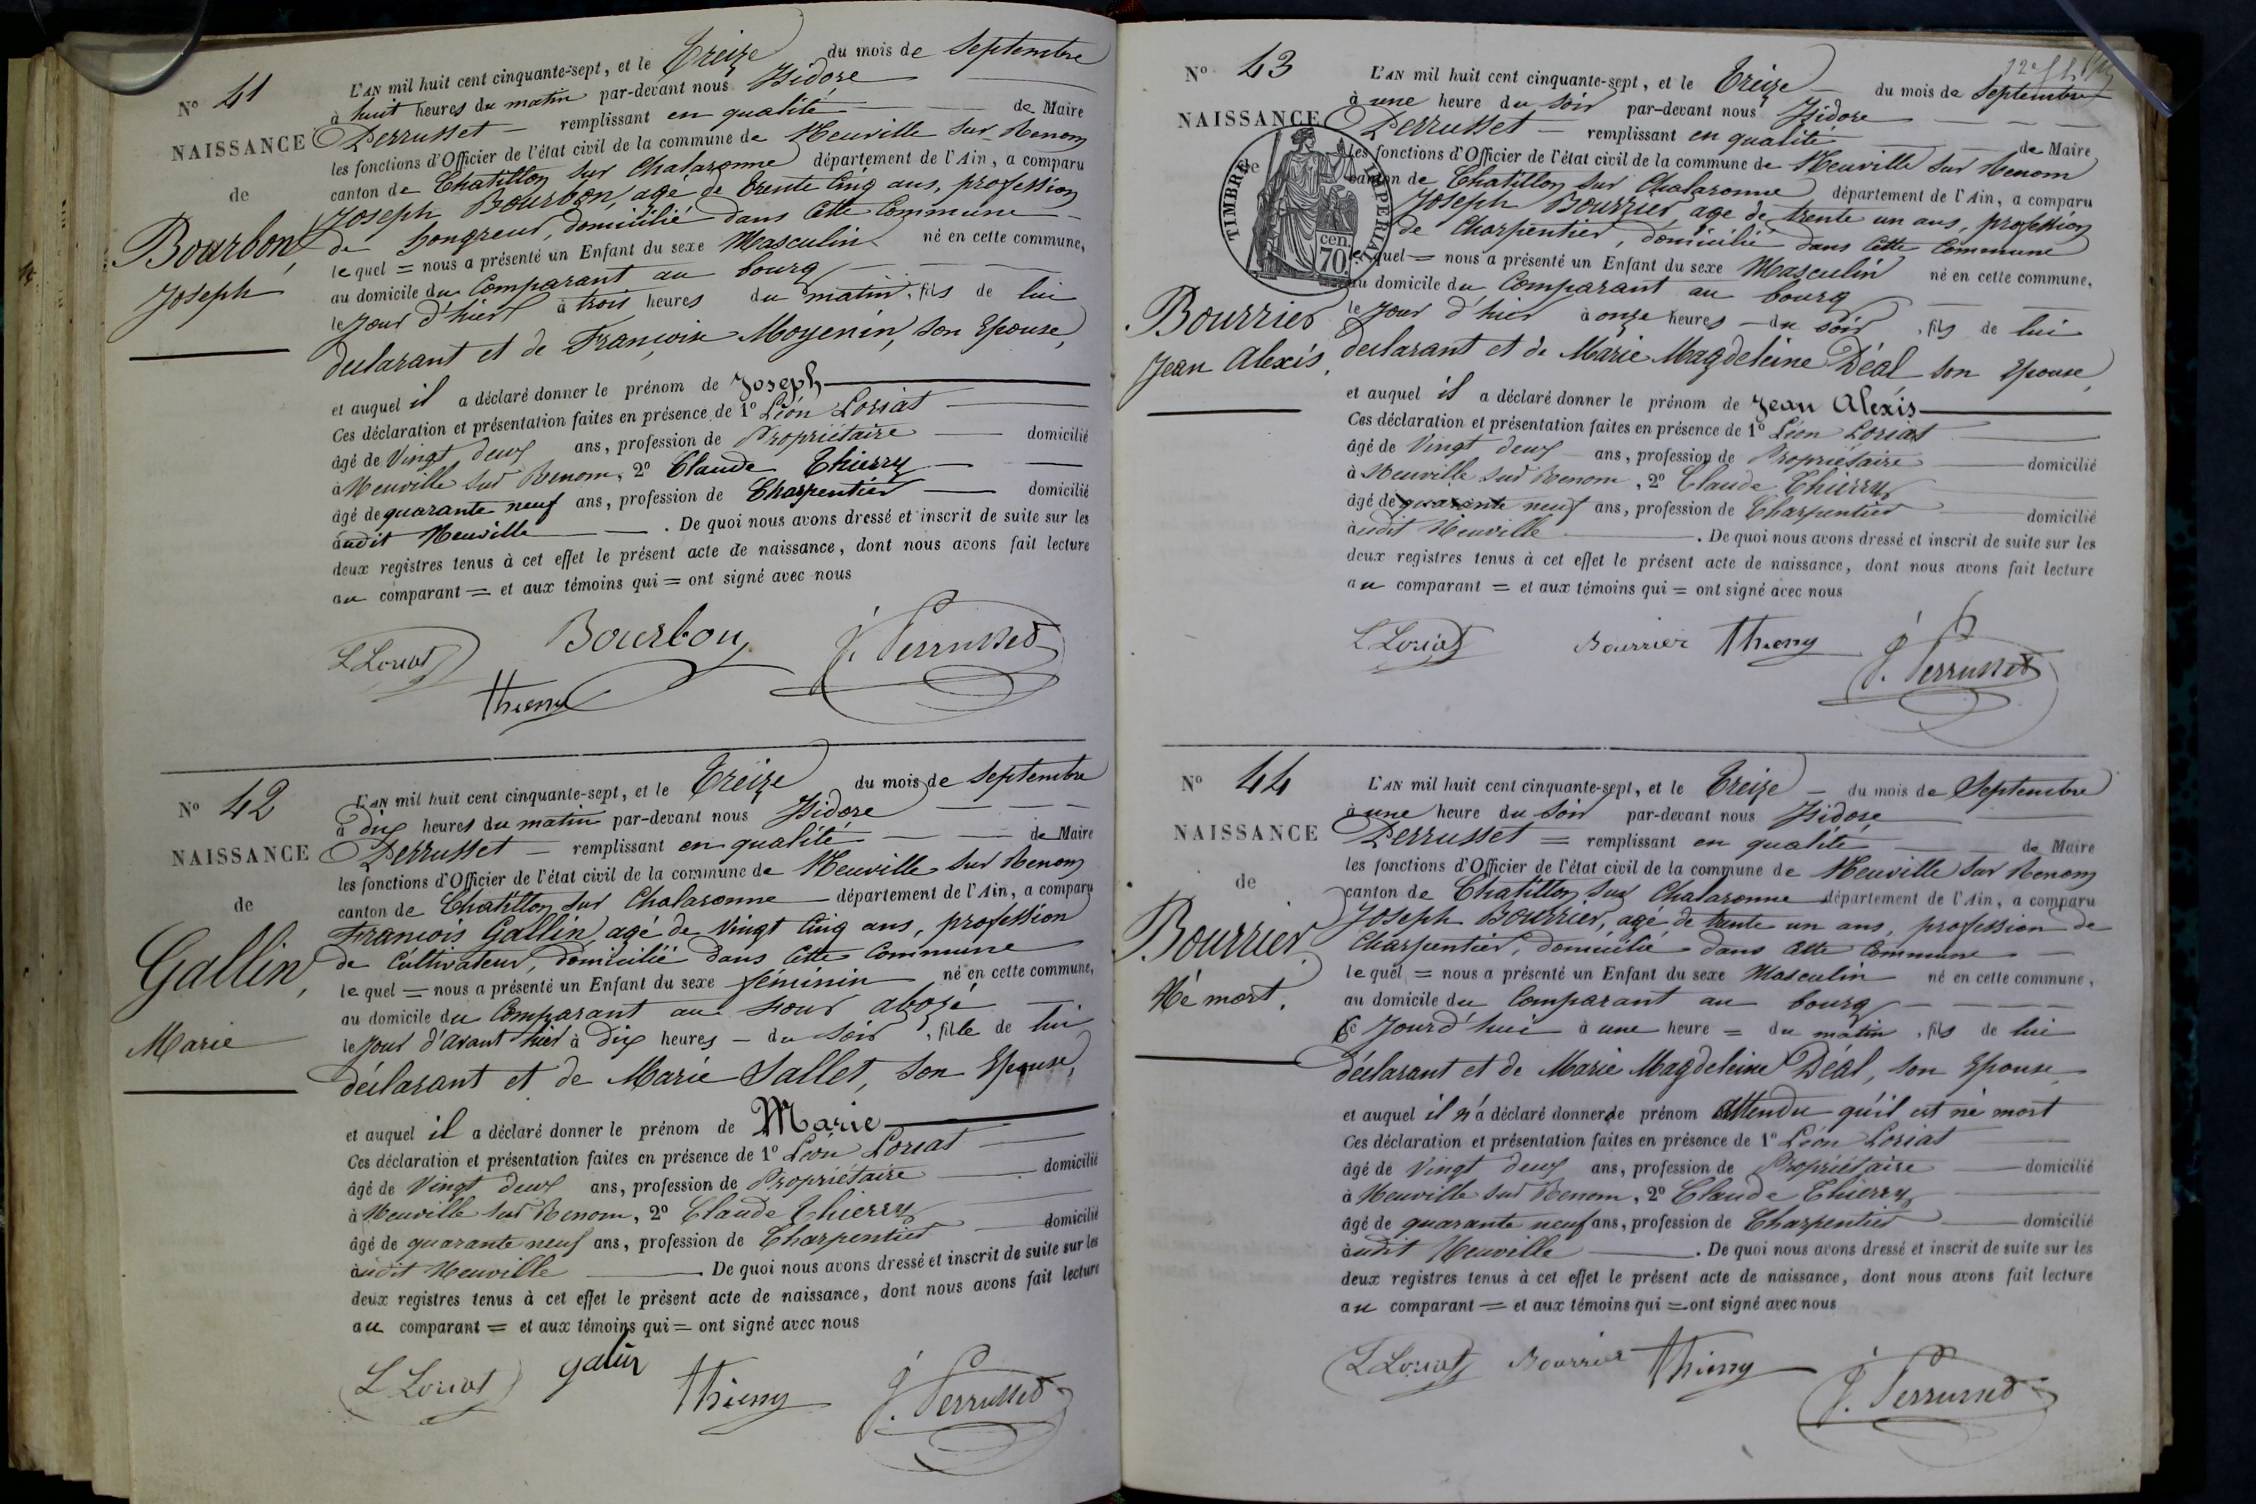 N° 41
NAISSANCE
de
Bourbon,
Joseph
L'AN mil huit cent cinquante-sept, et le Treize du mois de Septembre
à huit heures du matin par-devant nous Isidore
Perrusset remplissant en qualité de Maire
les fonctions d'Officier de l'état civil de la commune de Neuville sur Renom
canton de Chatillon sur Chalaronne département de l'Ain, a comparu
Joseph Bourbon, agé de trente Cinq ans, profession
de hongreur, domicilié dans Cette Commune
le quel = nous a présenté un Enfant du sexe Masculin né en cette commune,
au domicile du Comparant au bourg
le Jour d'hier à trois heures du matin, fils de lui
declarant et de Françoise Moyenin, son Epouse,
et auquel il a déclaré donner le prénom de Joseph
Ces déclaration et présentation faites en présence de 1° Léon Loriat
âgé de Vingt deux ans, profession de Propriétaire domicilié
à Neuville sur Renom, 2° Claude Thierry
âgé de quarante neuf ans, profession de Charpentier domicilié
audit Neuville . De quoi nous avons dressé et inscrit de suite sur les
deux registres tenus à cet effet le présent acte de naissance, dont nous avons fait lecture
au comparant = et aux témoins qui = ont signé avec nous
L Loriat Bourbon J. Perrusset
Thierry
N° 42
NAISSANCE
de
Gallin,
Marie
L'AN mil huit cent cinquante-sept, et le Treize du mois de Septembre
à dix heures du matin par-devant nous Isidore
Perrusset remplissant en qualité de Maire
les fonctions d'Officier de l'état civil de la commune de Neuville sur Renom
canton de Chatillon sur Chalaronne département de l'Ain, a comparu
François Gallin, agé de Vingt Cinq ans, profession
de Cultivateur, domicilié dans Cette Commune
le quel = nous a présenté un Enfant du sexe féminin né en cette commune,
au domicile du Comparant au
le Jour d'avant hier à Dix heures du soir, fille de lui
déclarant et de Marie Sallet, son Epouse,
et auquel il a déclaré donner le prénom de Marie
Ces déclaration et présentation faites en présence de 1° Léon Loriat
âgé de Vingt deux ans, profession de Propriétaire domicilié
à Neuville sur Renom, 2° Claude Thierry
âgé de quarante neuf ans, profession de Charpentier domicilié
audit Neuville . De quoi nous avons dressé et inscrit de suite sur les
deux registres tenus à cet effet le présent acte de naissance, dont nous avons fait lecture
au comparant = et aux témoins qui = ont signé avec nous
L Loriat galin Thierry J. Perrusset
N° 43
NAISSANCE
de
TIMBRE IMPERIAL
cen. 70.
Bourrier
Jean Alexis,
L'AN mil huit cent cinquante-sept, et le Treize du mois de Septembre
à une heure du soir par-devant nous Isidore
Perrusset remplissant en qualité de Maire
les fonctions d'Officier de l'état civil de la commune de Neuville sur Renom
canton de Chatillon sur Chalaronne département de l'Ain, a comparu
Joseph Bourrier, agé de trente un ans, profession
de Charpentier, domicilié dans Cette Commune
le quel = nous a présenté un Enfant du sexe Masculin né en cette commune,
au domicile du Comparant au bourg
le Jour d'hier à onze heures du soir, fils de lui
declarant et de Marie Magdeleine Déal son Epouse,
et auquel il a déclaré donner le prénom de Jean Alexis
Ces déclaration et présentation faites en présence de 1° Léon Loriat
âgé de Vingt deux ans, profession de Propriétaire domicilié
à Neuville sur Renom, 2° Claude Thierry
âgé de quarante neuf ans, profession de Charpentier domicilié
audit Neuville . De quoi nous avons dressé et inscrit de suite sur les
deux registres tenus à cet effet le présent acte de naissance, dont nous avons fait lecture
au comparant = et aux témoins qui = ont signé avec nous
L Loriat Bourrier Thierry J. Perrusset
N° 44
NAISSANCE
de
Bourrier,
Né mort.
L'AN mil huit cent cinquante-sept, et le Treize du mois de Septembre
à une heure du soir par-devant nous Isidore
Perrusset = remplissant en qualité de Maire
les fonctions d'Officier de l'état civil de la commune de Neuville sur Renom
canton de Chatillon sur Chalaronne département de l'Ain, a comparu
Joseph Bourrier, agé de trente un ans, profession de
Charpentier, domicilié dans Cette Commune
le quel = nous a présenté un Enfant du sexe Masculin né en cette commune,
au domicile du Comparant au bourg
Ce Jourd'hui à une heure = du matin, fils de lui
déclarant et de Marie Magdeleine Déal, son Epouse
et auquel il n'a déclaré donner de prénom attendu qu'il est né mort
Ces déclaration et présentation faites en présence de 1° Léon Loriat
âgé de Vingt deux ans, profession de Propriétaire domicilié
à Neuville sur Renom, 2° Claude Thierry
âgé de quarante neuf ans, profession de Charpentier domicilié
audit Neuville . De quoi nous avons dressé et inscrit de suite sur les
deux registres tenus à cet effet le présent acte de naissance, dont nous avons fait lecture
au comparant = et aux témoins qui = ont signé avec nous
L Loriat Bourrier Thierry J. Perrusset